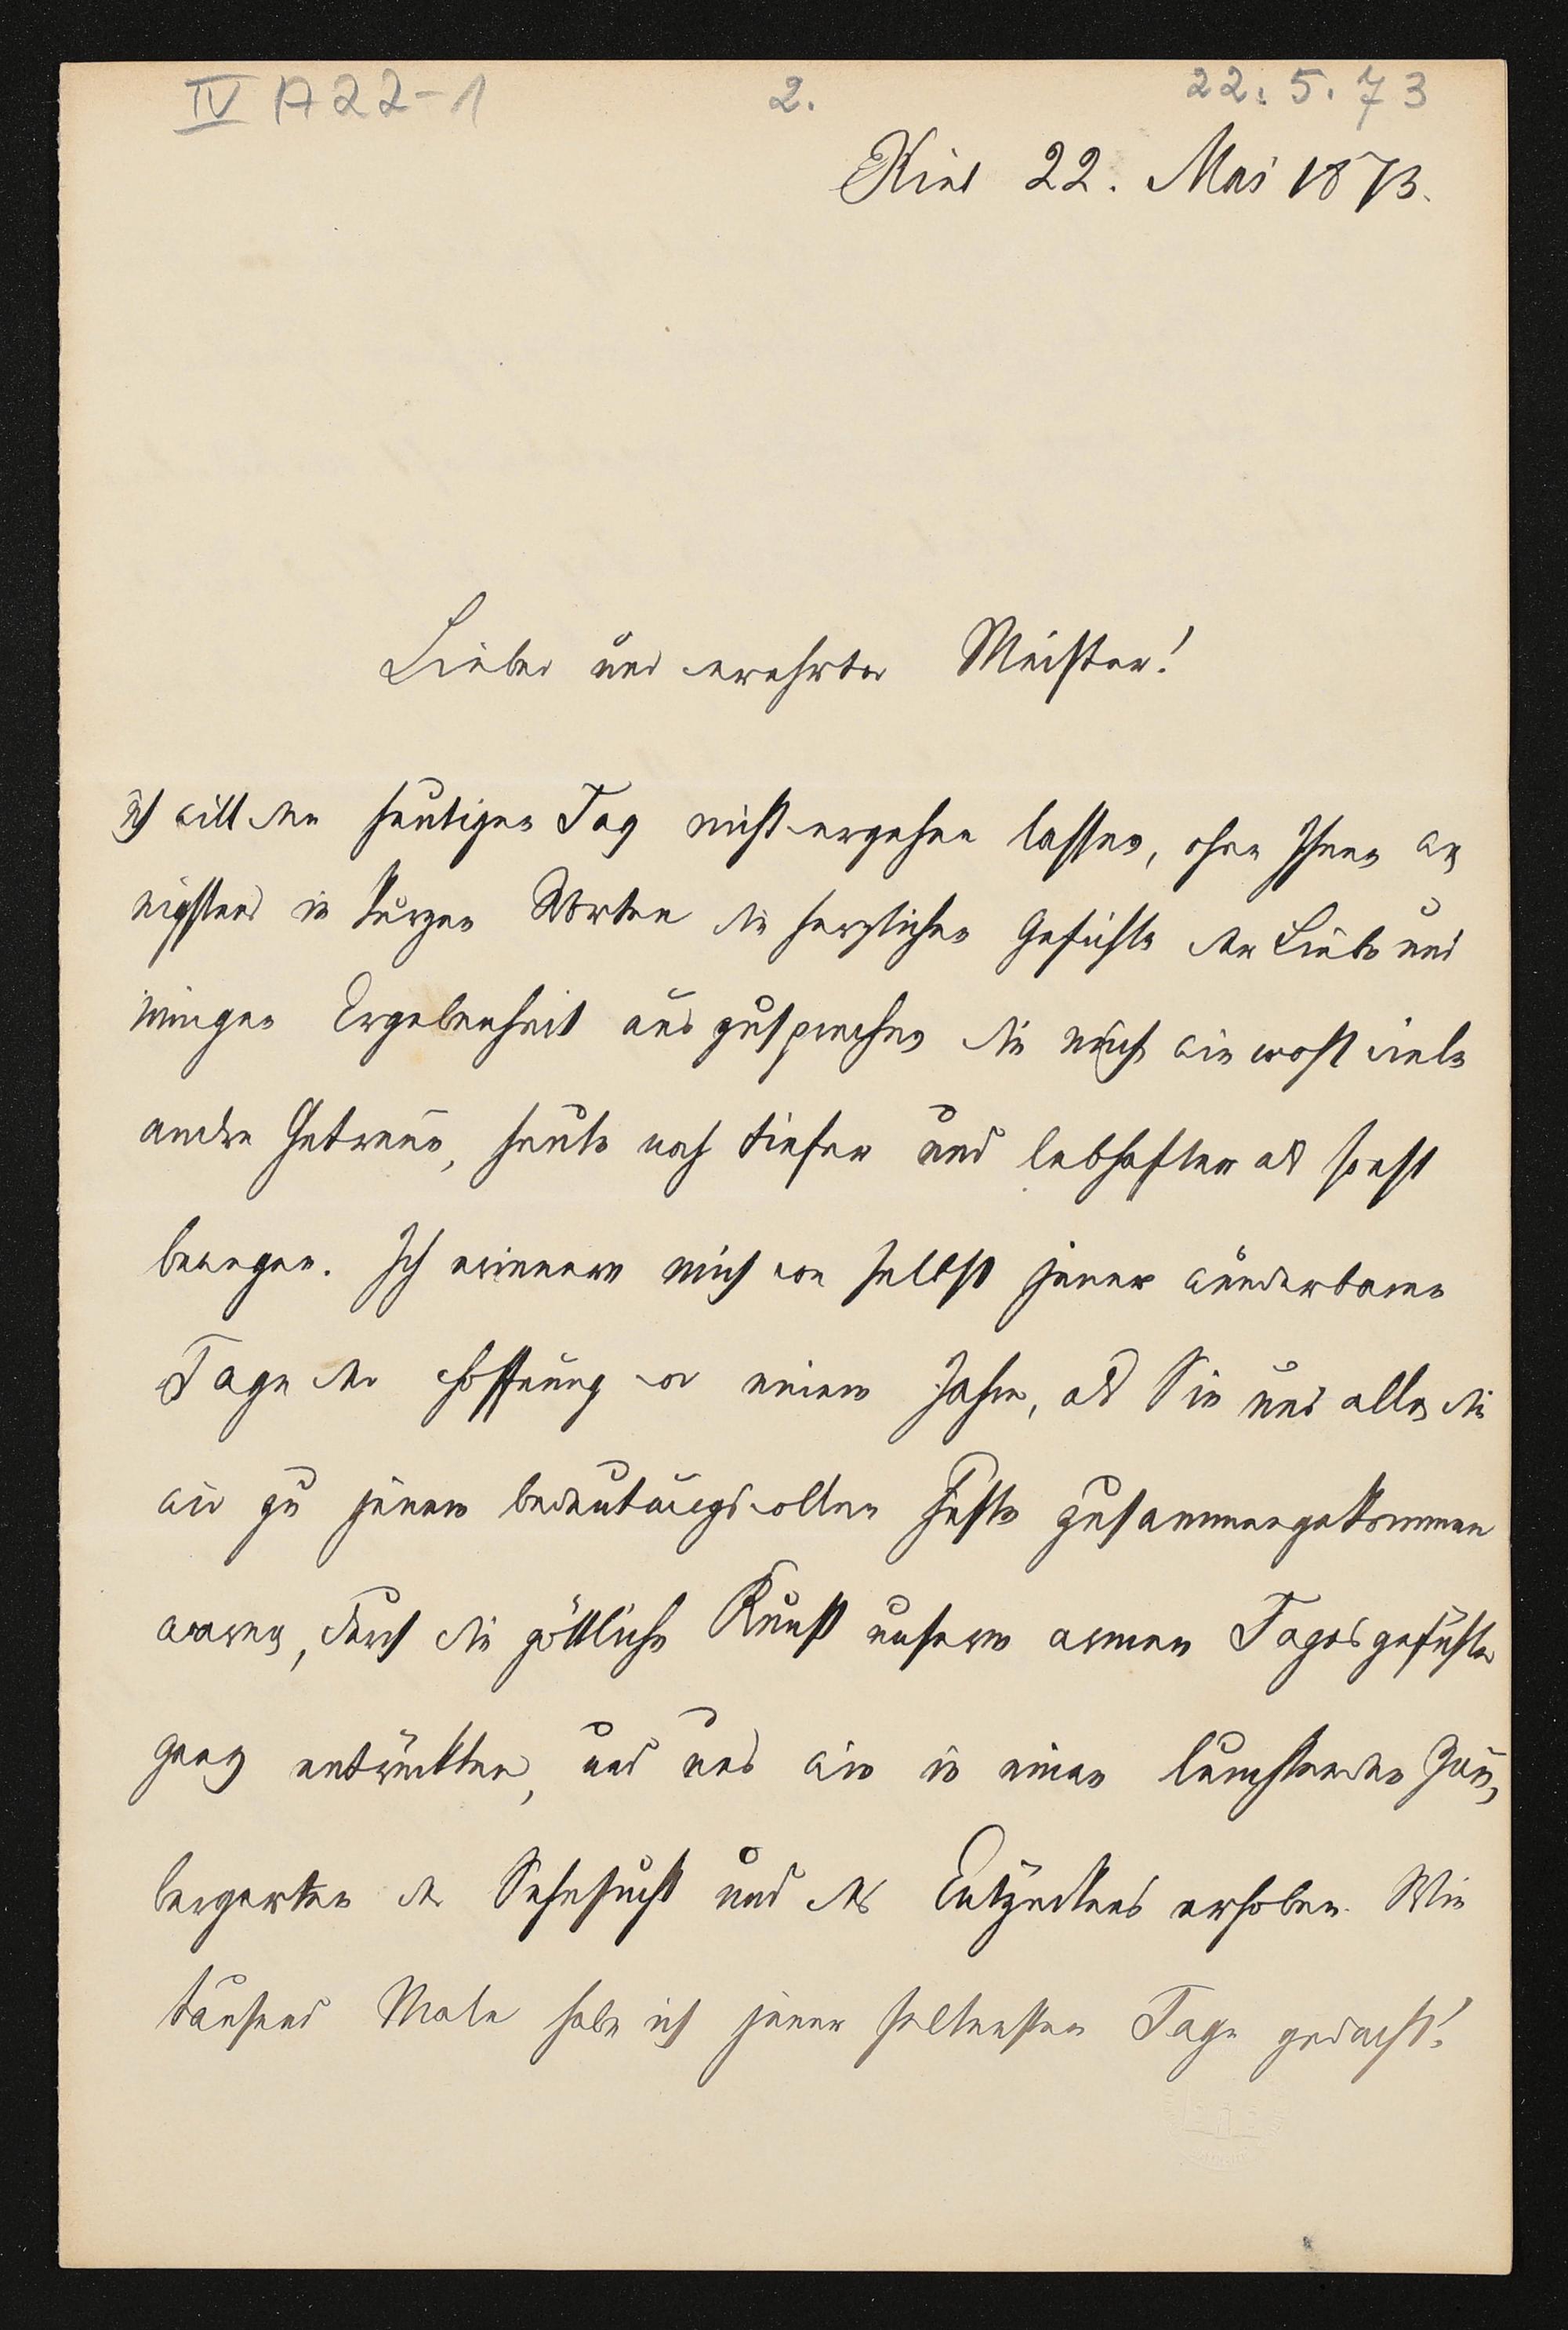 IV A 22-1 2. 22.5.73
Kiel 22. Mai 1873.
Lieber und verehrter Meister!
ich will den heutigen Tag nicht vergehen lassen, ohne Ihnen we-
nigstens in kurzen Worten die herzlichen Gefühle der Liebe und
innigen Ergebenheit auszusprechen die mich wie wohl viele
andre Getreue, heute noch tiefer und lebhafter als sonst
bewegen. Ich erinnere mich von selbst jener wunderbaren
Tage der Hoffnung vor einem Jahre, als Sie uns alle, die
wir zu jenem bedeutungsvollen Feste zusammengekommen
waren, durch die göttliche Kunst unserm armen Tagesgefühle
ganz entrückten, und uns wie in einen leuchtenden Zau-
bergarten der Sehnsucht und des Entzückens erhoben. Wie
tausend Male habe ich jener seltensten Tage gedacht!